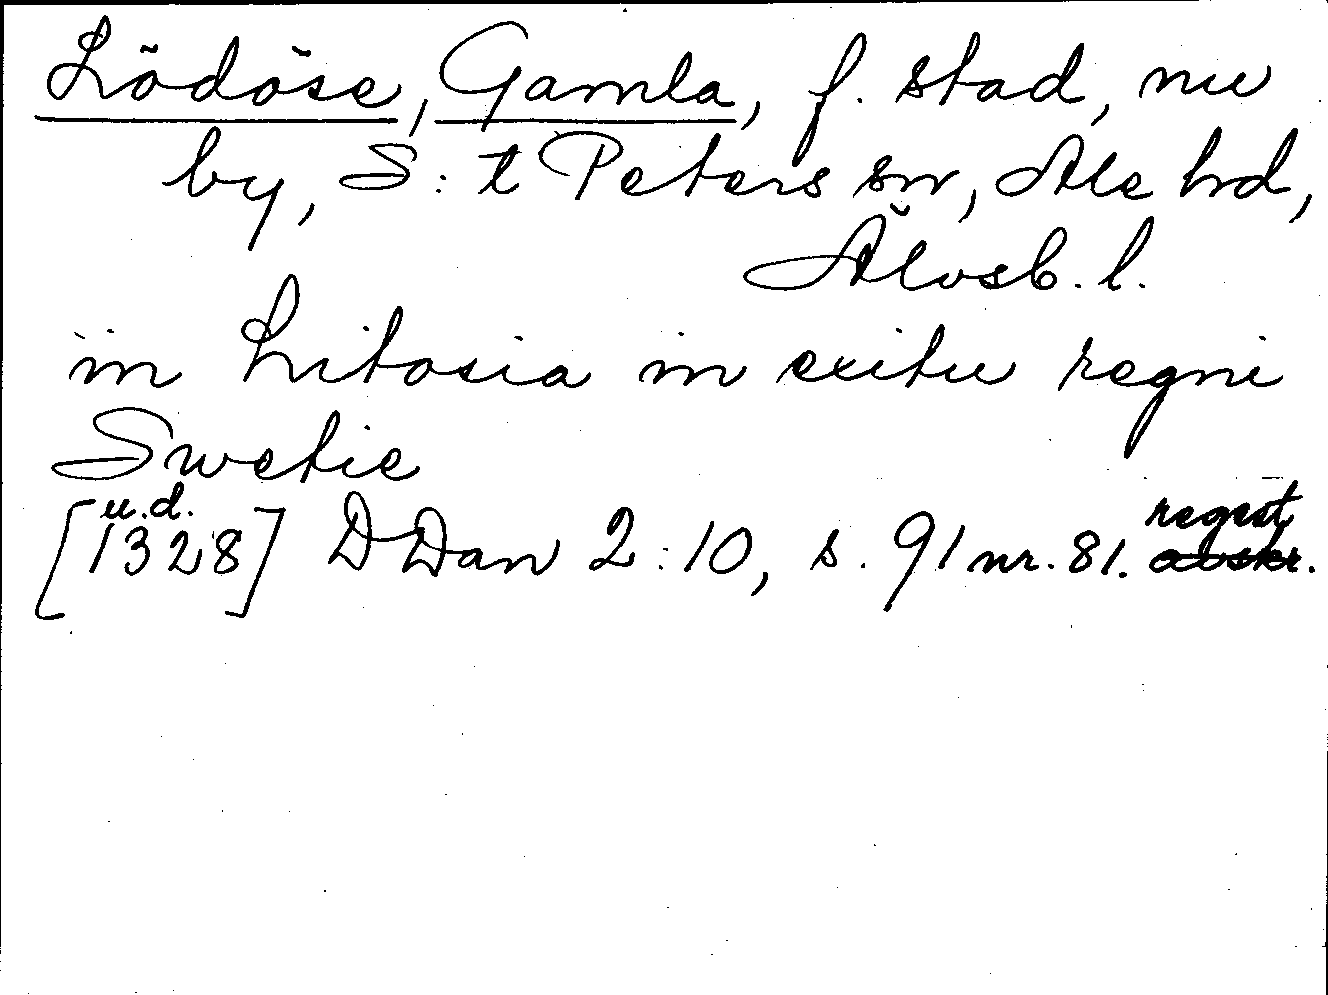 Lödöse, Gamla, f. stad, nu
by, S:t Peters sn, Ale hd,
Älvsb. l.
in Litosia in exitu regni
Swetie
u.d. regest
[1328] DDan 2:10, s. 91 nr. 81. avskr.